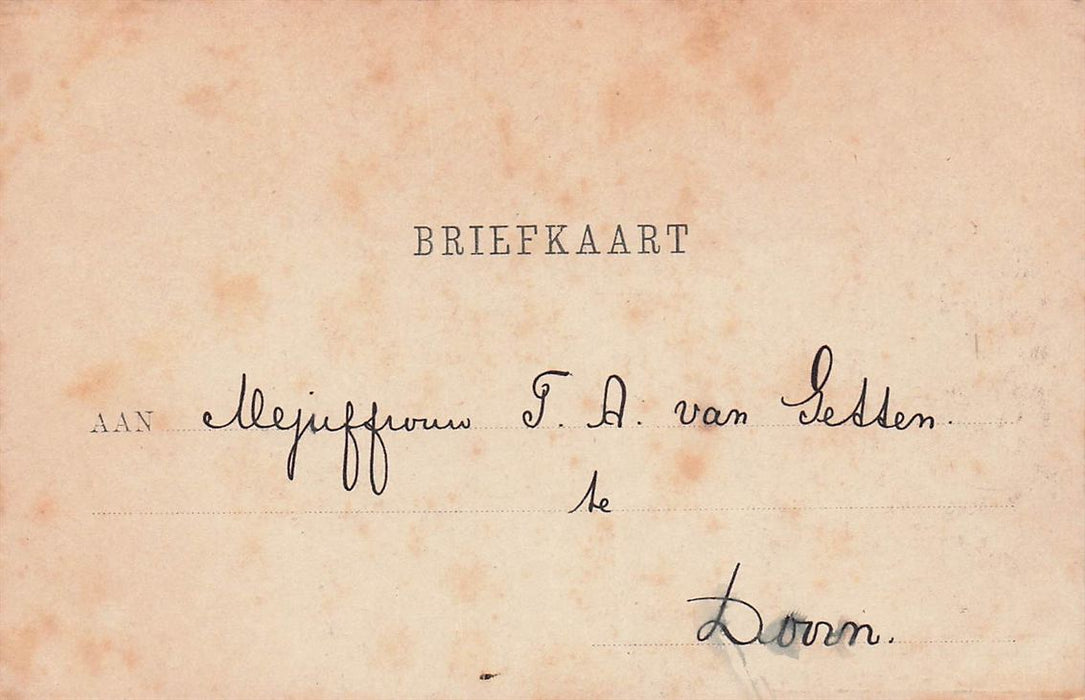 BRIEFKAART
AAN Mejuffrouw T. A. van Getten.
te
Doorn.